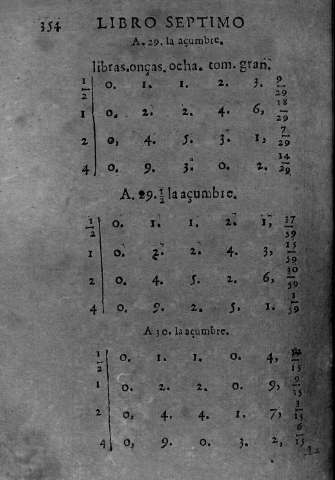 354 LIBRO SEPTIMO
A. 29. la açumbre.
libras. onças. ocha. tom. gran.
1/2 0. 1. 1. 2. 3. 9/29
1 0. 2. 2. 4. 6, 18/29
2 0, 4. 5. 3. 1, 7/29
4 0. 9. 3. 0. 2. 14/29
A. 29. 1/2 la açumbre.
1/2 0. 1. 1. 2. 1, 37/59
1 0. 2. 2. 4. 3, 15/59
2 0, 4. 5. 2. 6, 30/59
4 0. 9. 2. 5. 1. 1/59
A 30. la açumbre.
1/2 0. 1. 1. 0. 4, /15
1 0. 2. 2. 0. 9, 9/15
2 0, 4. 4. 1. 7, 3/15
4 0, 9. 0. 3. 2, 6/15